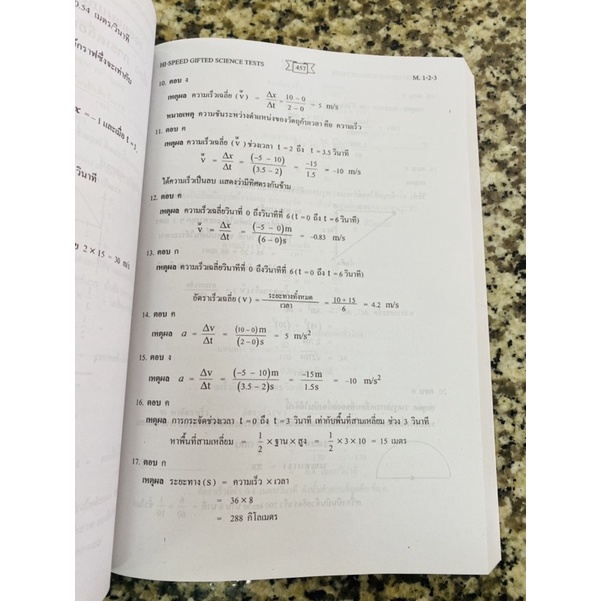 0.54 เมตร/วินาที
x = -1 และเมื่อ t = 3.
วินาที
2 × 15 - 30 m/s
HI-SPEED GIFTED SCIENCE TESTS 457 M. 1-2-3
10. ตอบ ง
เหตุผล ความเร็วเฉลี่ย (v) = Δx/Δt = 10-0/2-0 = 5 m/s
หมายเหตุ ความชันระหว่างตำแหน่งของวัตถุกับเวลา คือ ความเร็ว
11. ตอบ ค
เหตุผล ความเร็วเฉลี่ย (v) ช่วงเวลา t = 2 ถึง t = 3.5 วินาที
v = Δx/Δt = (-5 - 10)/(3.5 - 2) = -15/1.5 = -10 m/s
ได้ความเร็วเป็นลบ แสดงว่ามีทิศตรงกันข้าม
12. ตอบ ค
เหตุผล ความเร็วเฉลี่ยวินาทีที่ 0 ถึงวินาทีที่ 6 (t = 0 ถึง t = 6 วินาที)
v = Δx/Δt = (-5 - 0)m/(6-0)s = -0.83 m/s
13. ตอบ ก
เหตุผล ความเร็วเฉลี่ยวินาทีที่ 0 ถึงวินาทีที่ 6 (t = 0 ถึง t = 6 วินาที)
อัตราเร็วเฉลี่ย (v) = ระยะทางทั้งหมด/เวลา = 10 + 15/6 = 4.2 m/s
14. ตอบ ค
เหตุผล a = Δv/Δt = (10-0)m/(2-0)s = 5 m/s²
15. ตอบ ง
เหตุผล a = Δv/Δt = (-5 - 10)m/(3.5 - 2)s = -15m/1.5s = -10 m/s²
16. ตอบ ค
เหตุผล การกระจัดช่วงเวลา t = 0 ถึง t = 3 วินาที เท่ากับพื้นที่สามเหลี่ยม ช่วง 3 วินาที
หาพื้นที่สามเหลี่ยม = 1/2 × ฐาน × สูง = 1/2 × 3 × 10 = 15 เมตร
17. ตอบ ก
เหตุผล ระยะทาง (S) = ความเร็ว × เวลา
= 36 × 8
= 288 กิโลเมตร